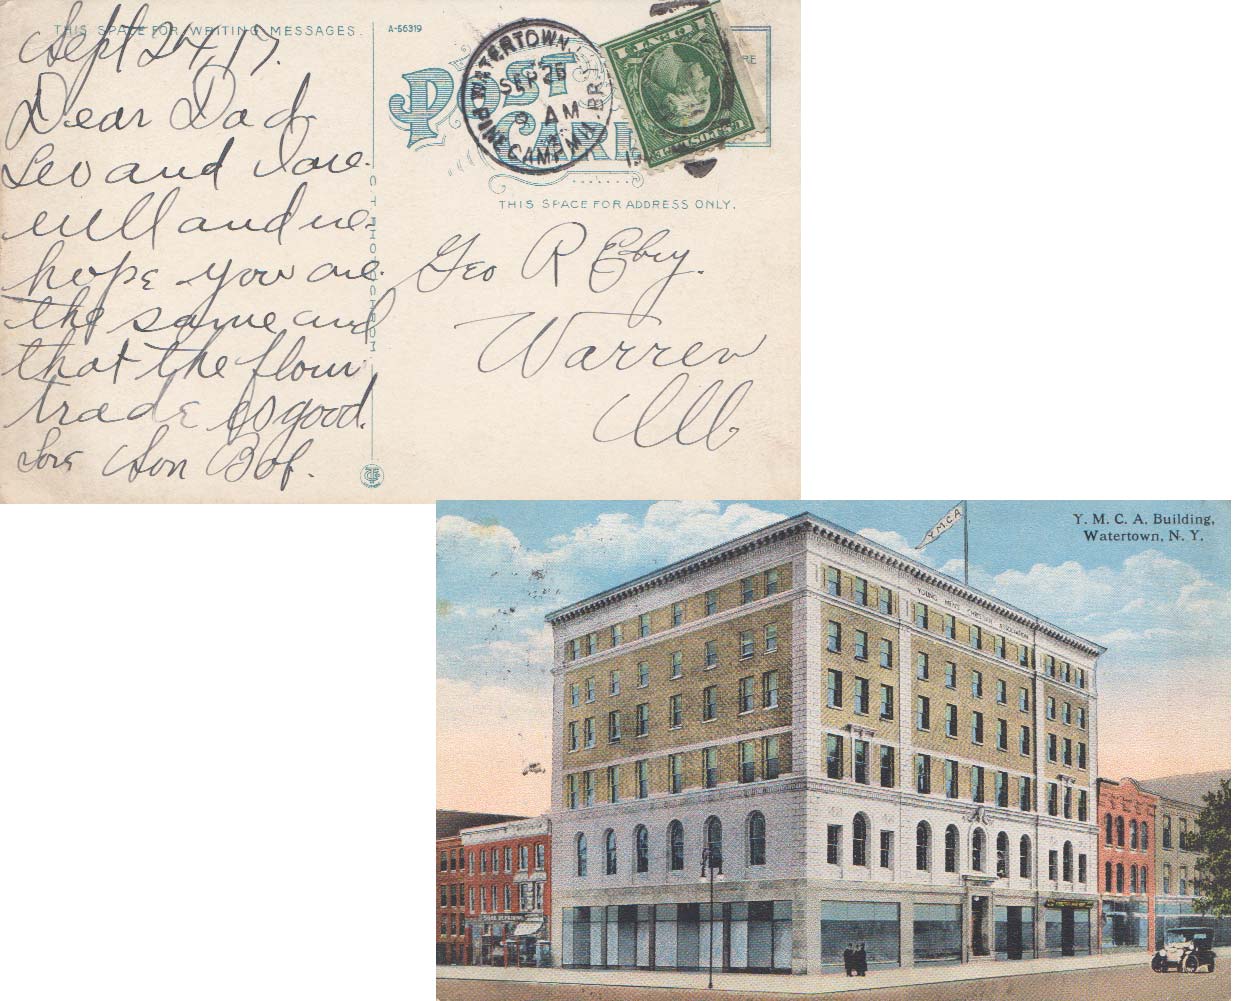 THIS SPACE FOR WRITING MESSAGES.
A-56319
Sept 24, 17.
Dear Dad
Leo and I are
well and we
hope you are
the same and
that the flour
trade is good.
Love Son Bob.
C.T. PHOTOCHROM
POST CARD
WATERTOWN
SEP 25
9 AM
PINE CAMP MIL. BR.
THIS SPACE FOR ADDRESS ONLY.
Geo R Eby.
Warren
Ills
Y. M. C. A. Building,
Watertown, N. Y.
Y.M.C.A.
YOUNG MEN'S CHRISTIAN ASSOCIATION